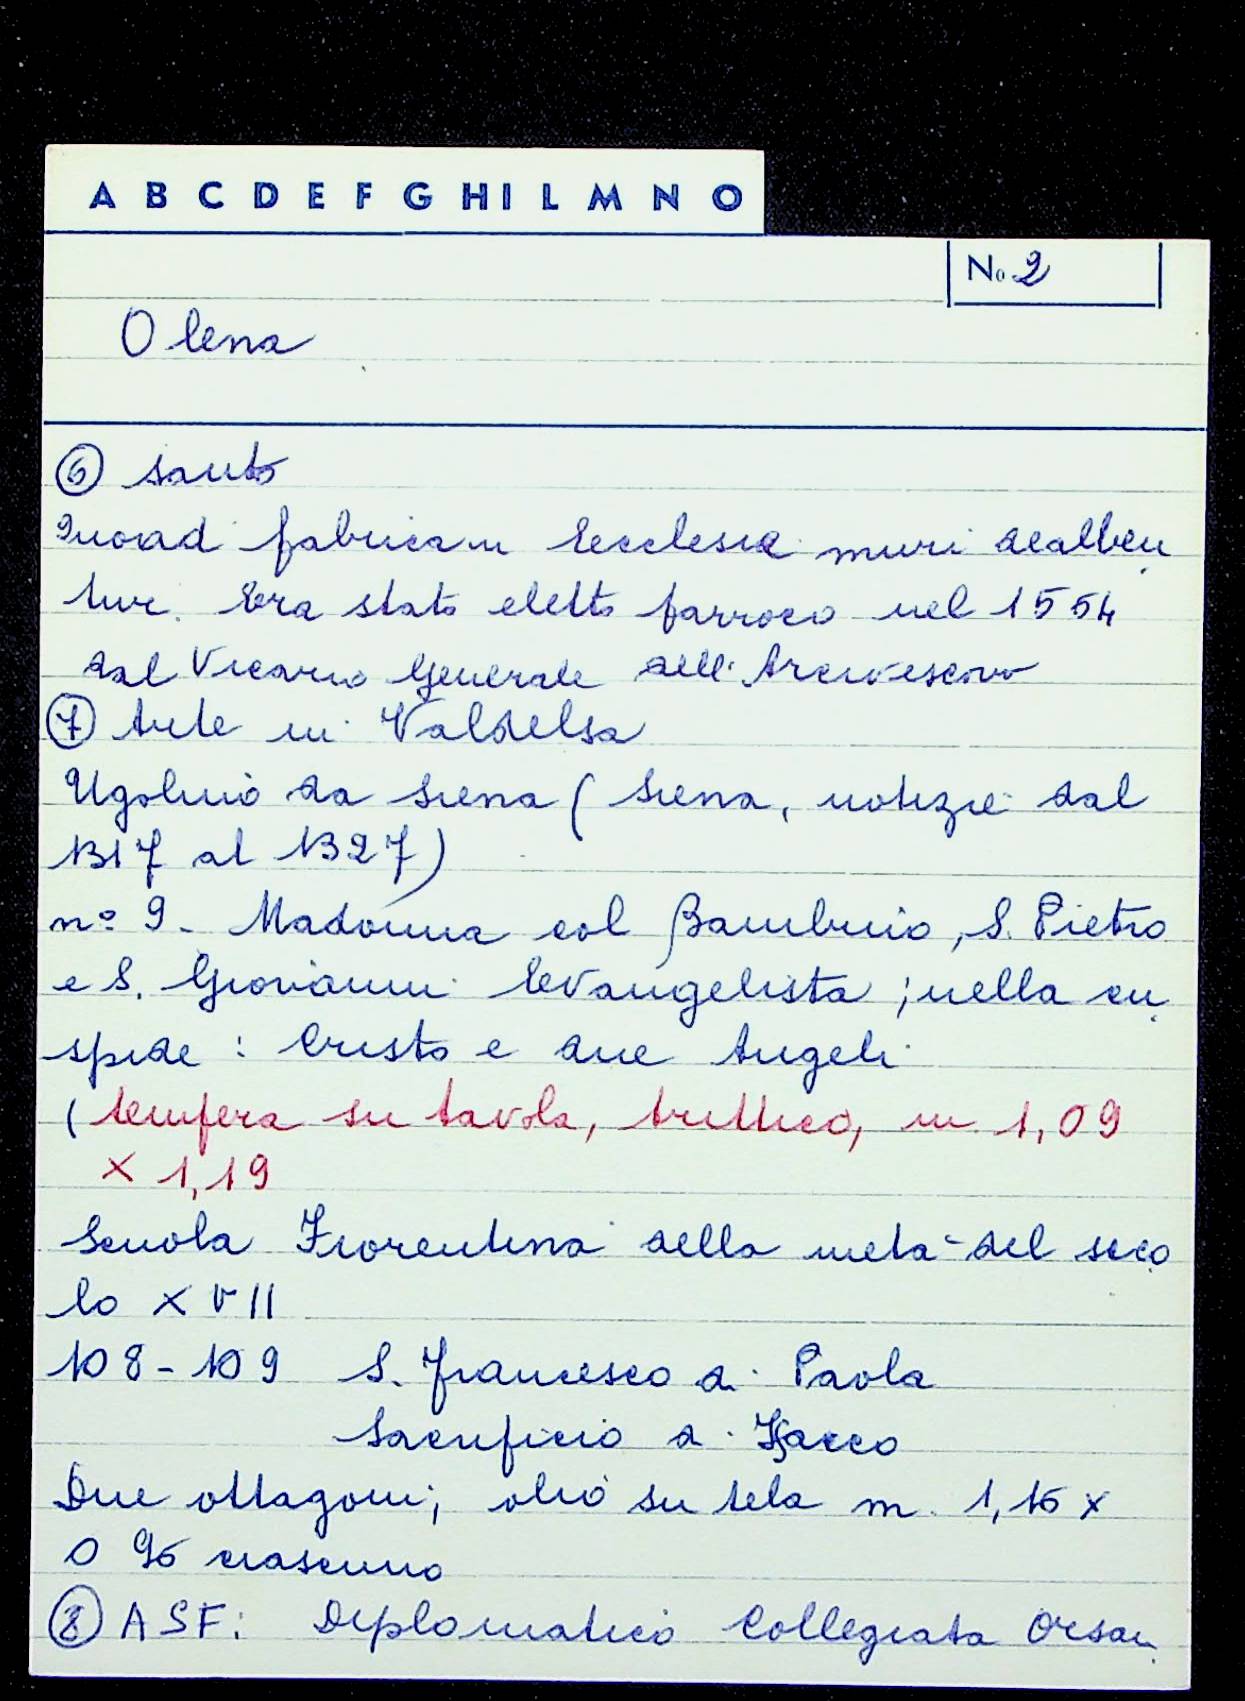 A B C D E F G H I L M N O
No 2
Olena
⑥ santo
Quoad fabricam Ecclesie muri dealben
tur. Era stato eletto parroco nel 1554
dal Vicario Generale dell'Arcivescovo
⑦ Arte in Valdelsa
Ugolino da Siena (Siena, notizie dal
1317 al 1327)
n° 9 - Madonna col Bambino, S. Pietro
e S. Giovanni Evangelista; nella cu
spide: Cristo e due Angeli
(tempera su tavola, trittico, m. 1,09
x 1,19
Scuola Fiorentina della metà del seco
lo XVII
108-109 S. Francesco di Paola
Sacrificio di Isacco
Due ottagoni; olio su tela m. 1,16 x
0 96 ciascuno
⑧ ASF: Diplomatico Collegiata Orsan